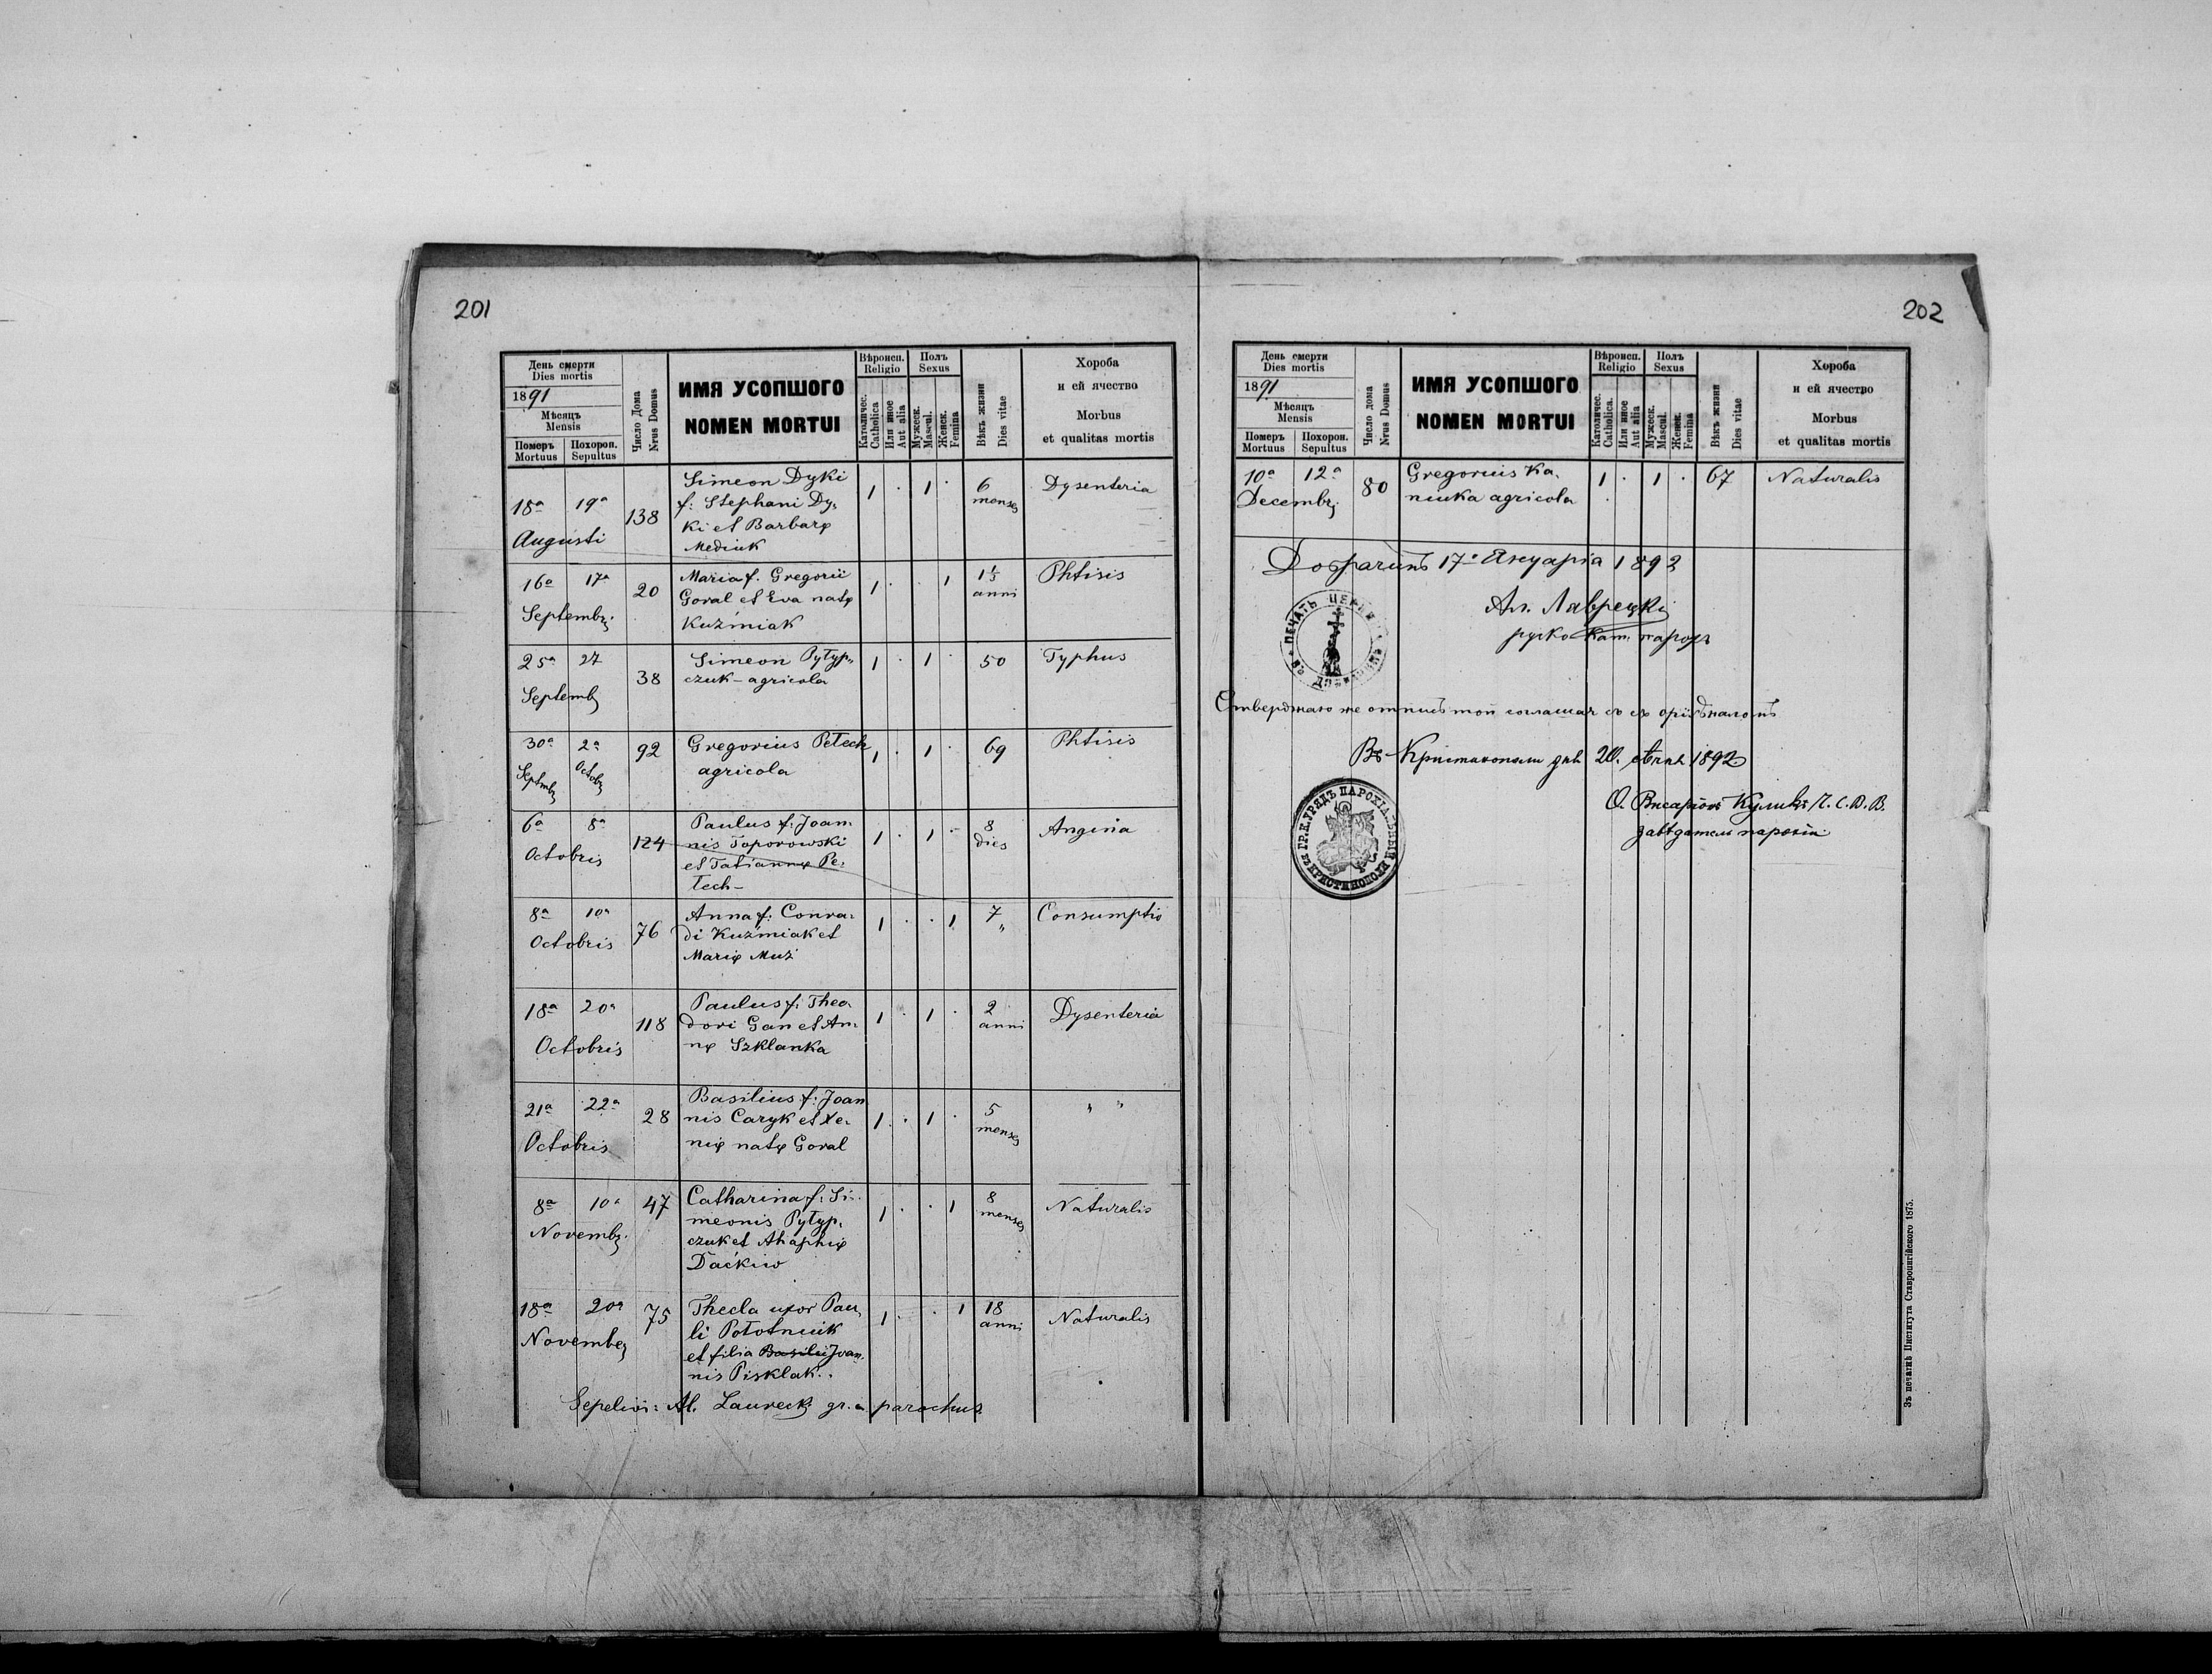 201
День смерти
Dies mortis
1891
Мѣсяцъ
Mensis
Померъ
Mortuus
Похорон.
Sepultus
Число Дома
Nrus Domus
ИМЯ УСОПШОГО
NOMEN MORTUI
Вѣроисп.
Religio
Католичес.
Catholica
Или иное
Aut alia
Полъ
Sexus
Мужеск.
Mascul.
Женск.
Femina
Вѣкъ жизни
Dies vitae
Хороба
и ей ячество
Morbus
et qualitas mortis
18ª 19ª Augusti 138
Simeon Dyki
f: Stephani Dy-
ki et Barbaræ
Mediuk
1 · 1 · 6 menses Dysenteria
16ª 17ª Septembr. 20
Maria f. Gregorii
Goral et Eva natæ
Kuźmiak
1 · · 1 1½ anni Phtisis
25ª 27 Septemb 38
Simeon Pytyp-
czuk - agricola
1 · 1 · 50 Typhus
30ª Septemb 2ª Octob 92
Gregorius Petech
agricola
1 · 1 · 69 Phtisis
6ª 8ª Octobris 124
Paulus f: Joan-
nis Toporowski
et Tatiannæ Pe-
tech -
1 · 1 - 8 dies Angina
8ª 10ª Octobris 76
Anna f: Conra-
di Kuźmiak et
Mariæ Muź
1 · · 1 7 " Consumptio
18ª 20ª Octobris 118
Paulus f: Theo-
dori Gan et An-
næ Szklanka
1 · 1 · 2 anni Dysenteria
21ª 22ª Octobris 28
Basilius f: Joan
nis Caryk et Xe-
niæ natæ Goral
1 · 1 · 5 menses " "
8ª 10ª Novembr. 47
Catharina f: Si-
meonis Pytyp-
czuk et Ahaphiæ
Daćkiw
1 · · 1 8 menses Naturalis
18ª 20ª Novembr 75
Thecla uxor Pau-
li Połotniuk
et filia Basilii Joan-
nis Pisklak.
1 · · 1 18 anni Naturalis
Sepelivi: Al. Laurecki gr. c. parochus
202
День смерти
Dies mortis
1891
Мѣсяцъ
Mensis
Померъ
Mortuus
Похорон.
Sepultus
Число дома
Nrus Domus
ИМЯ УСОПШОГО
NOMEN MORTUI
Вѣроисп.
Religio
Католичес.
Catholica.
Или иное
Aut alia
Полъ
Sexus
Мужеск.
Mascul.
Женск.
Femina
Вѣкъ жизни
Dies vitae
Хороба
и ей ячество
Morbus
et qualitas mortis
10ª 12ª Decembr. 80
Gregorius Ka-
niuka agricola
1 · 1 · 67 Naturalis
17 Януарія 1892
Ал. Лаврецкій
руско кат. парох
ПЕЧАТЬ ЦЕРКВИ
Стверджаю же отпись той
Въ Кристинополи дня 20. 1892
О. Висаріон Куликъ Ч. С. В. В.
завѣдатель парохіи
ГР. К. УРЯДЪ ПАРОХІАЛЬНЫЙ ВЪ КРИСТИНОПОЛИ
Зъ печатнѣ Института Ставропигійского 1875.